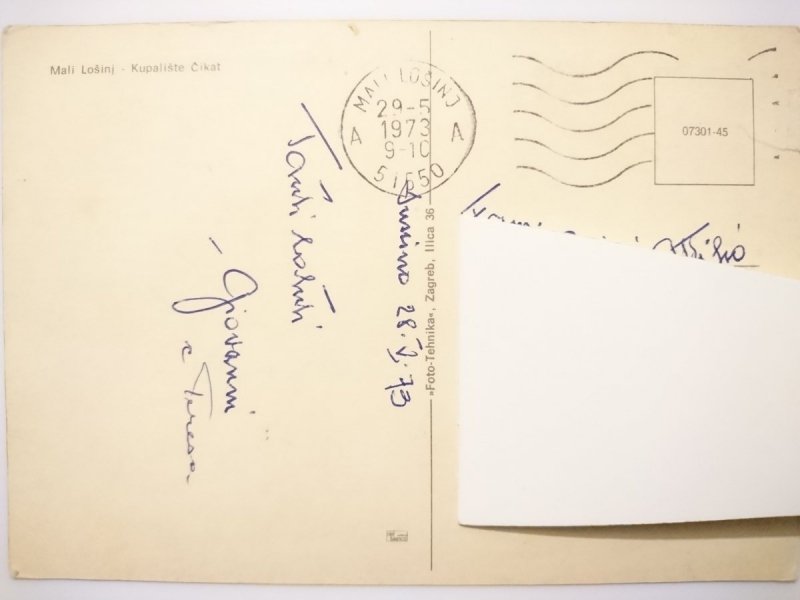 Mali Lošinj - Kupalište Čikat
MALI LOŠINJ
29-5
1973
9-10
A A
51550
07301-45
»Foto-Tehnika«, Zagreb, Ilica 36
28.V.73
Tanti saluti
- Giovanni
e Teresa